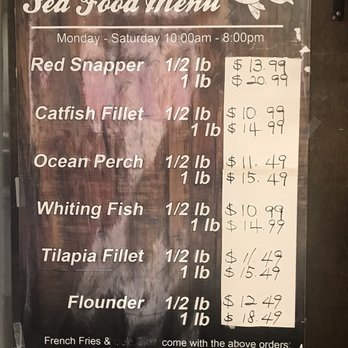 Sea Food Menu
Monday - Saturday 10:00am - 8:00pm
Red Snapper 1/2 lb $13.99
1 lb $20.99
Catfish Fillet 1/2 lb $10.99
1 lb $14.99
Ocean Perch 1/2 lb $11.49
1 lb $15.49
Whiting Fish 1/2 lb $10.99
1 lb $14.99
Tilapia Fillet 1/2 lb $11.49
1 lb $15.49
Flounder 1/2 lb $12.49
1 lb $18.49
French Fries & come with the above orders